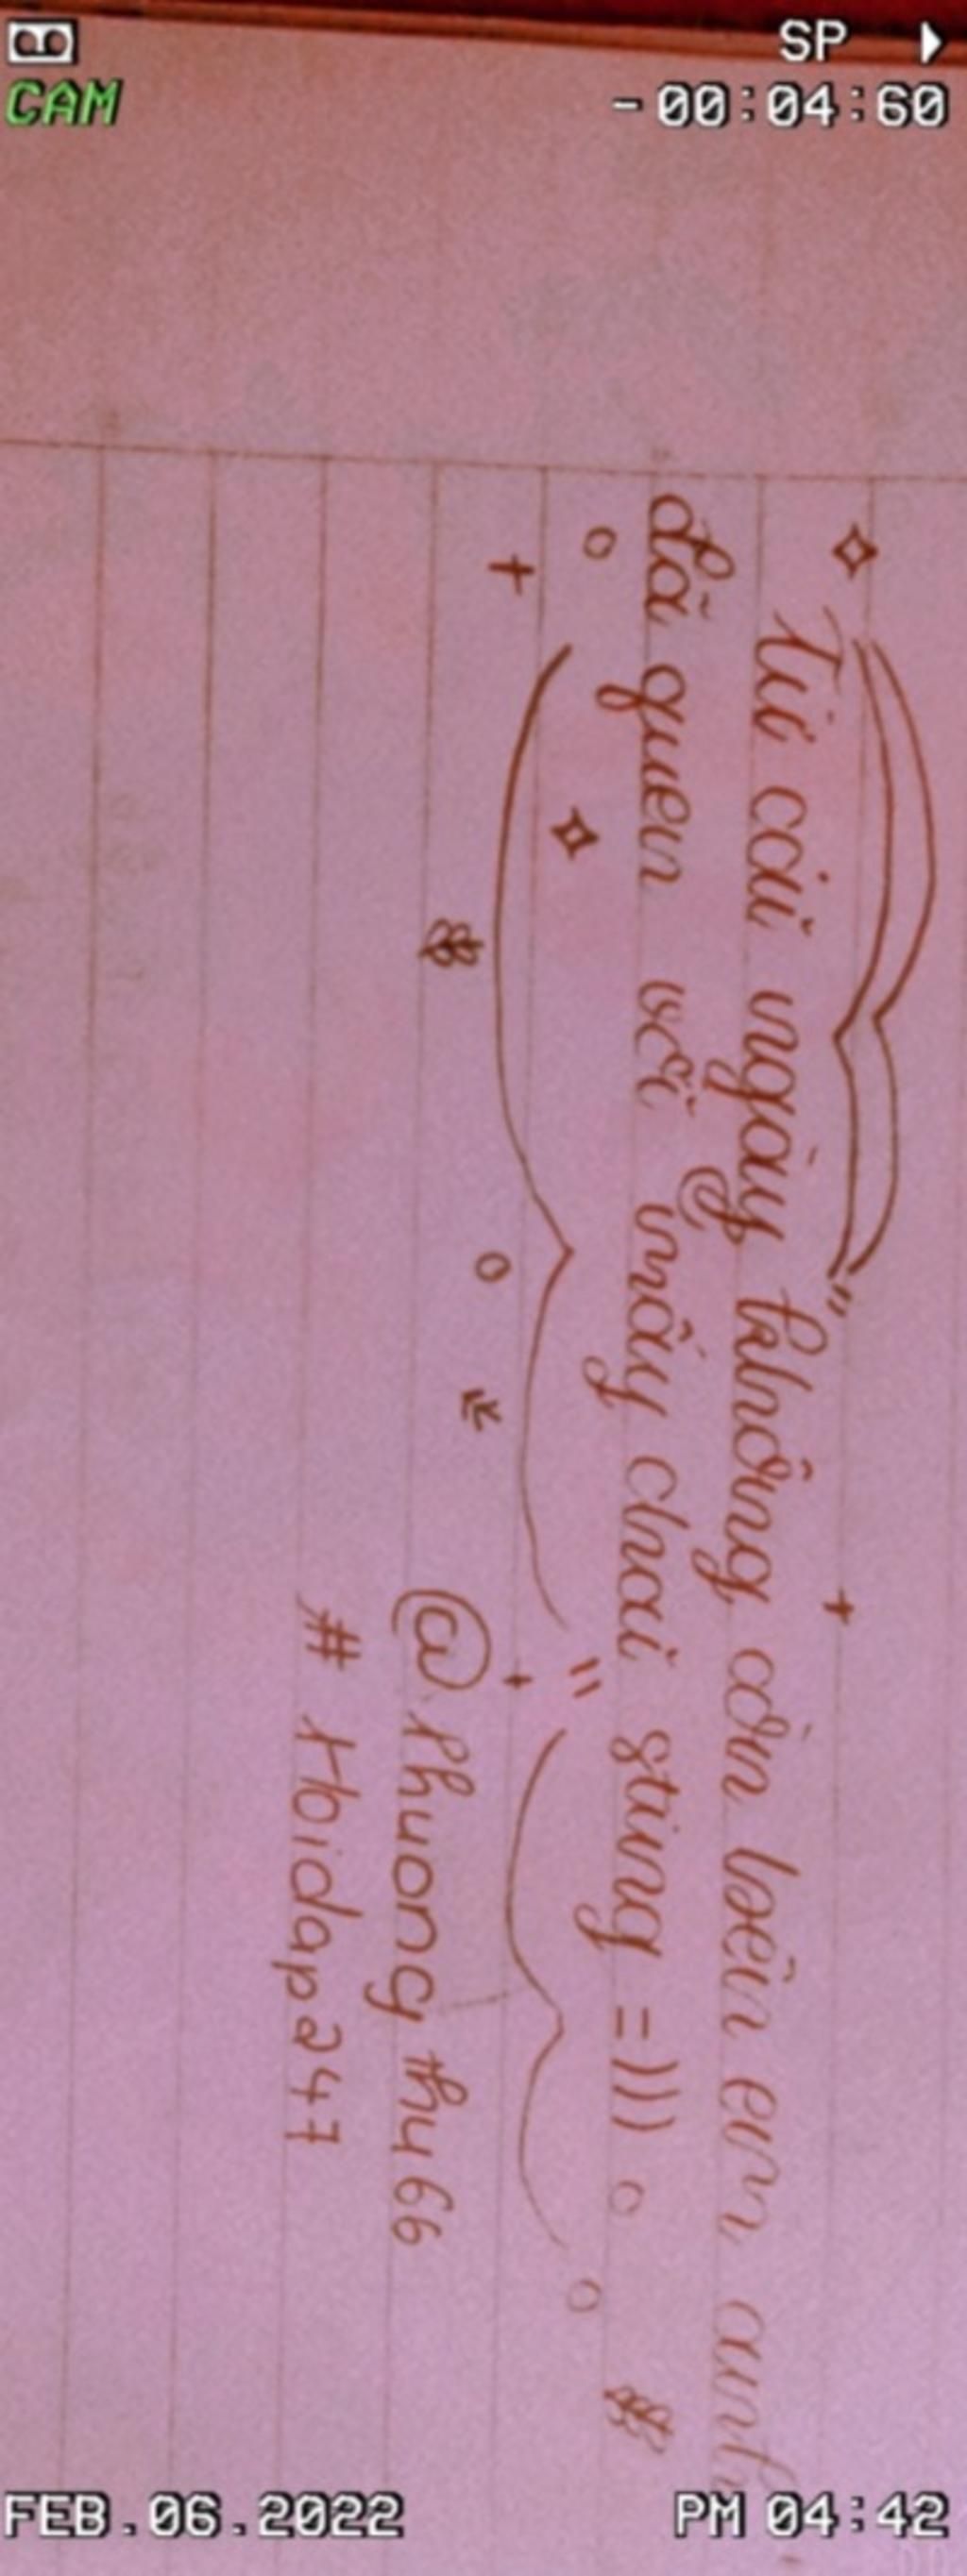 SP
CAM
-00:04:60
Từ cái ngày không còn bên em anh
đã quen với mấy chai sting =)))
@ Phuong thu 66
# Hoidap247
FEB.06.2022
PM 04:42